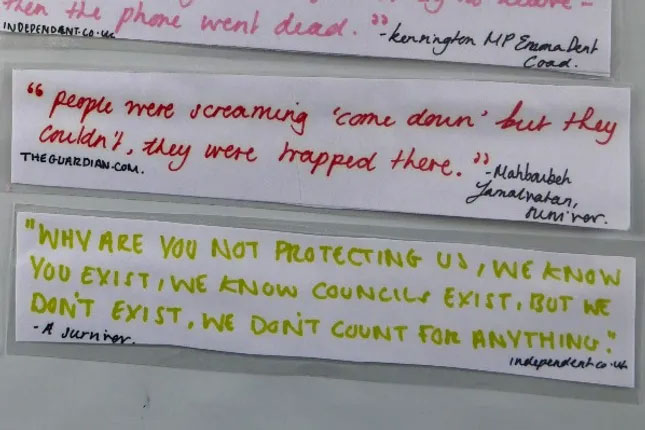 then the phone went dead."
INDEPENDENT.CO.UK
-Kennington MP Emma Dent
Coad.
"People were screaming 'come down' but they
couldn't, they were trapped there."
THEGUARDIAN.COM.
-Mahboubeh
Jamalvatan,
survivor.
"WHY ARE YOU NOT PROTECTING US, WE KNOW
YOU EXIST, WE KNOW COUNCILS EXIST, BUT WE
DON'T EXIST, WE DON'T COUNT FOR ANYTHING."
- A survivor.
independent.co.uk